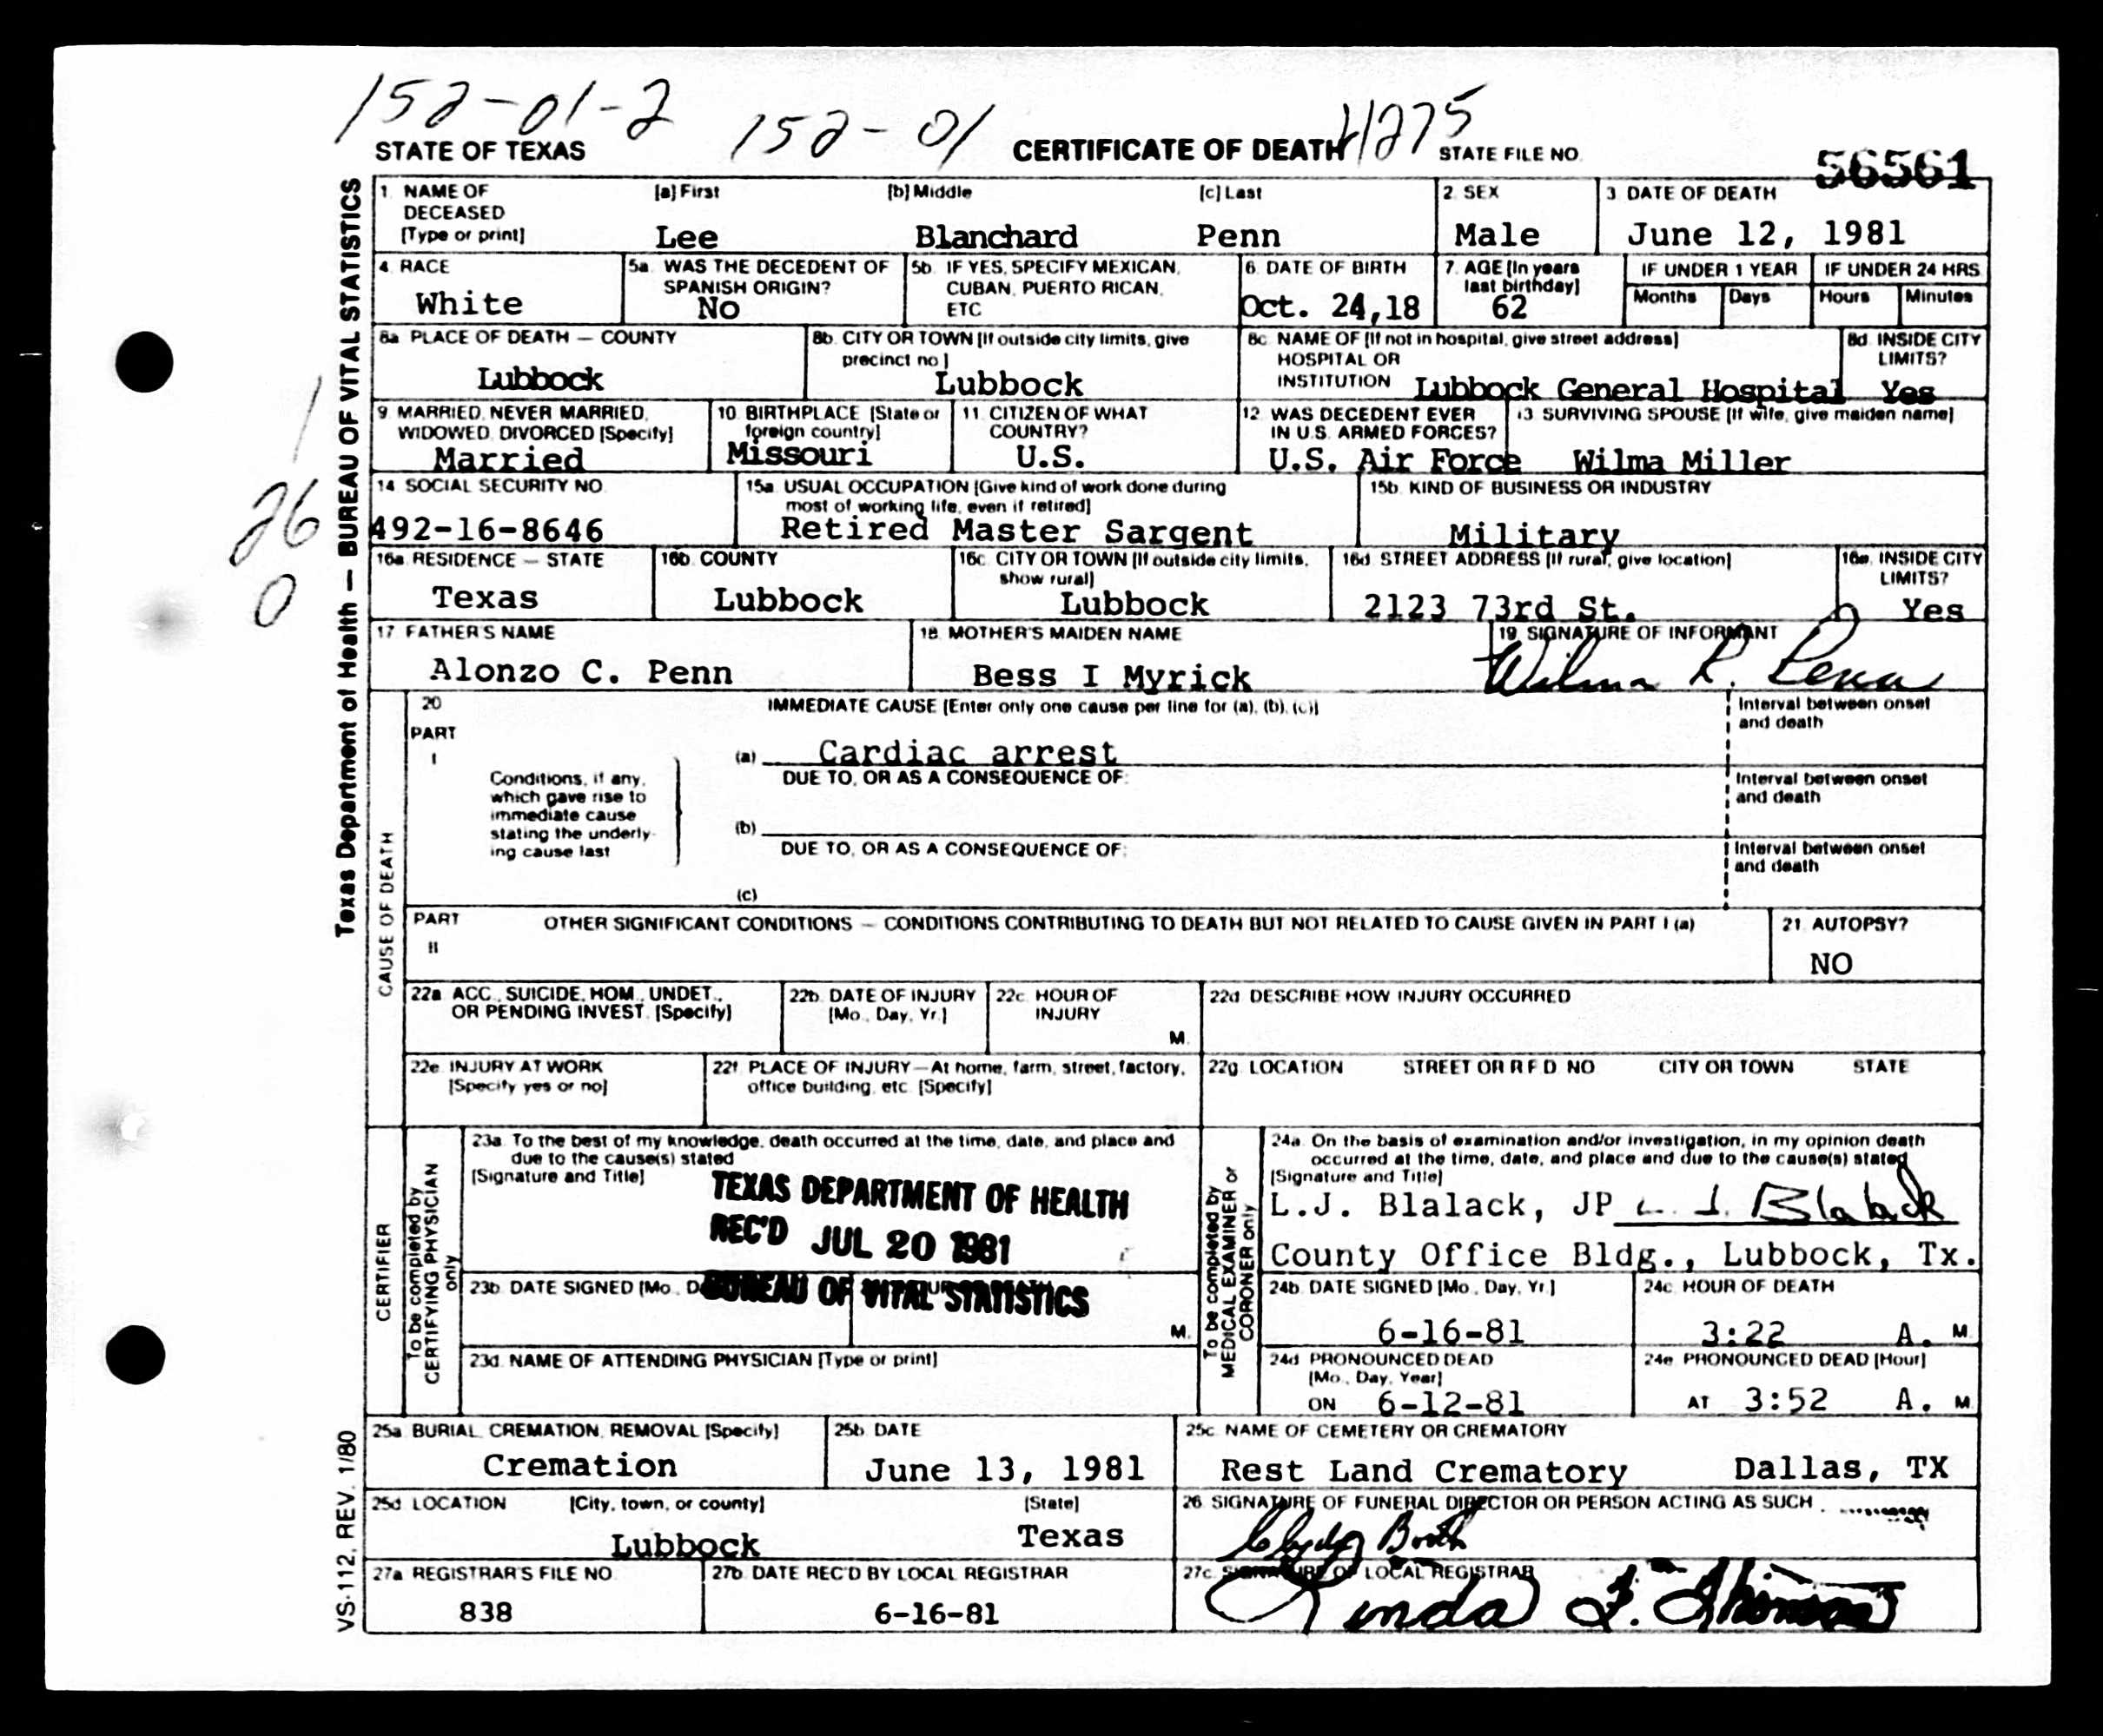 152-01-2 152-01 41275
STATE OF TEXAS CERTIFICATE OF DEATH STATE FILE NO. 56561
Texas Department of Health — BUREAU OF VITAL STATISTICS
1. NAME OF DECEASED [Type or print] [a] First [b] Middle [c] Last 2. SEX 3. DATE OF DEATH
Lee Blanchard Penn Male June 12, 1981
4. RACE 5a. WAS THE DECEDENT OF SPANISH ORIGIN? 5b. IF YES, SPECIFY MEXICAN, CUBAN, PUERTO RICAN, ETC 6. DATE OF BIRTH 7. AGE [In years last birthday] IF UNDER 1 YEAR IF UNDER 24 HRS
Months Days Hours Minutes
White No Oct. 24,18 62
8a. PLACE OF DEATH — COUNTY 8b. CITY OR TOWN [If outside city limits, give precinct no.] 8c. NAME OF [If not in hospital, give street address] HOSPITAL OR INSTITUTION 8d. INSIDE CITY LIMITS?
Lubbock Lubbock Lubbock General Hospital Yes
9. MARRIED, NEVER MARRIED, WIDOWED, DIVORCED [Specify] 10. BIRTHPLACE [State or foreign country] 11. CITIZEN OF WHAT COUNTRY? 12. WAS DECEDENT EVER IN U.S. ARMED FORCES? 13. SURVIVING SPOUSE [If wife, give maiden name]
Married Missouri U.S. U.S. Air Force Wilma Miller
26
0
14. SOCIAL SECURITY NO. 15a. USUAL OCCUPATION [Give kind of work done during most of working life, even if retired] 15b. KIND OF BUSINESS OR INDUSTRY
492-16-8646 Retired Master Sargent Military
16a. RESIDENCE — STATE 16b. COUNTY 16c. CITY OR TOWN [If outside city limits, show rural] 16d. STREET ADDRESS [If rural, give location] 16e. INSIDE CITY LIMITS?
Texas Lubbock Lubbock 2123 73rd St. Yes
17. FATHER'S NAME 18. MOTHER'S MAIDEN NAME 19. SIGNATURE OF INFORMANT
Alonzo C. Penn Bess I Myrick Wilma R. Penn
CAUSE OF DEATH
20. PART I IMMEDIATE CAUSE [Enter only one cause per line for (a), (b), (c)] Interval between onset and death
(a) Cardiac arrest
Conditions, if any, which gave rise to immediate cause stating the underlying cause last
DUE TO, OR AS A CONSEQUENCE OF: Interval between onset and death
(b)
DUE TO, OR AS A CONSEQUENCE OF: Interval between onset and death
(c)
PART II OTHER SIGNIFICANT CONDITIONS — CONDITIONS CONTRIBUTING TO DEATH BUT NOT RELATED TO CAUSE GIVEN IN PART I (a) 21. AUTOPSY?
NO
22a. ACC., SUICIDE, HOM., UNDET., OR PENDING INVEST. [Specify] 22b. DATE OF INJURY [Mo., Day, Yr.] 22c. HOUR OF INJURY M. 22d. DESCRIBE HOW INJURY OCCURRED
22e. INJURY AT WORK [Specify yes or no] 22f. PLACE OF INJURY — At home, farm, street, factory, office building, etc. [Specify] 22g. LOCATION STREET OR R.F.D. NO. CITY OR TOWN STATE
CERTIFIER
To be completed by CERTIFYING PHYSICIAN only
23a. To the best of my knowledge, death occurred at the time, date, and place and due to the cause(s) stated
[Signature and Title]
TEXAS DEPARTMENT OF HEALTH
REC'D JUL 20 1981
BUREAU OF VITAL STATISTICS
23b. DATE SIGNED [Mo., D
M.
23d. NAME OF ATTENDING PHYSICIAN [Type or print]
To be completed by MEDICAL EXAMINER or CORONER only
24a. On the basis of examination and/or investigation, in my opinion death occurred at the time, date, and place and due to the cause(s) stated
[Signature and Title]
L.J. Blalack, JP L. J. Blalack
County Office Bldg., Lubbock, Tx.
24b. DATE SIGNED [Mo., Day, Yr.] 24c. HOUR OF DEATH
6-16-81 3:22 A. M.
24d. PRONOUNCED DEAD [Mo., Day, Year] 24e. PRONOUNCED DEAD [Hour]
ON 6-12-81 AT 3:52 A. M.
25a. BURIAL, CREMATION, REMOVAL [Specify] 25b. DATE 25c. NAME OF CEMETERY OR CREMATORY
Cremation June 13, 1981 Rest Land Crematory Dallas, TX
25d. LOCATION [City, town, or county] [State] 26. SIGNATURE OF FUNERAL DIRECTOR OR PERSON ACTING AS SUCH
Lubbock Texas
27a. REGISTRAR'S FILE NO. 27b. DATE REC'D BY LOCAL REGISTRAR 27c. SIGNATURE OF LOCAL REGISTRAR
838 6-16-81 Linda F. Thomas
VS-112, REV. 1/80